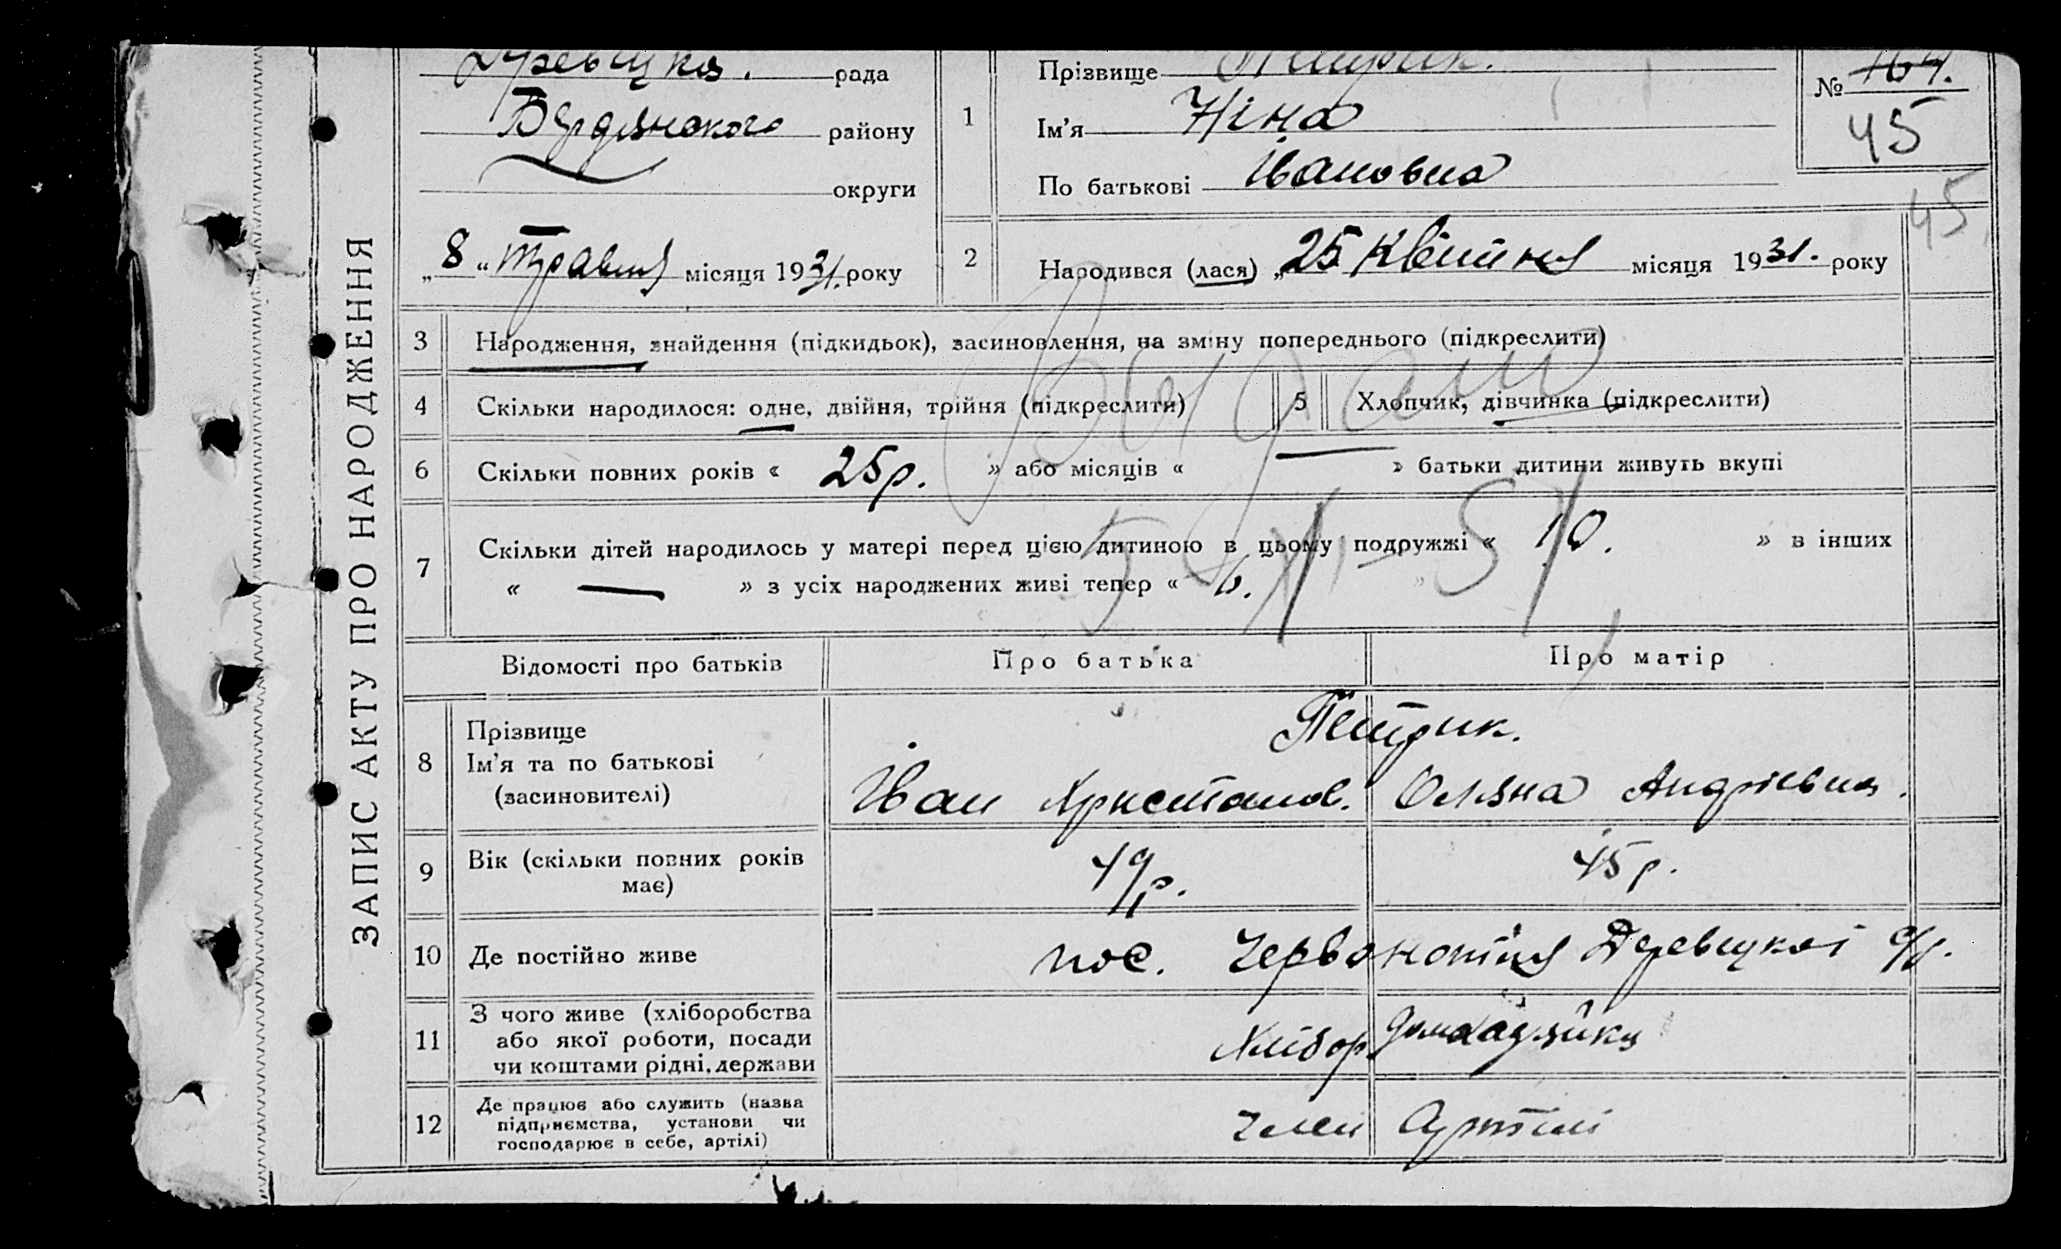 ЗАПИС АКТУ ПРО НАРОДЖЕННЯ
рада
Бердянського району
округи
„8“ Травня місяця 1931. року
1
Прізвище Петрик.
Ім'я Ніна
По батькові Івановна
№ 164.
45
45
2
Народився (лася) „25 Квітня місяця 1931. року
3 Народження, знайдення (підкидьок), засиновлення, на зміну попереднього (підкреслити)
4 Скільки народилося: одне, двійня, трійня (підкреслити)
5 Хлопчик, дівчинка (підкреслити)
6 Скільки повних років « 25 р. » або місяців « — » батьки дитини живуть вкупі
7 Скільки дітей народилось у матері перед цією дитиною в цьому подружжі « 10. » в інших
« — » з усіх народжених живі тепер « 6. »
Видано
5/XI-51
Відомості про батьків
Про батька
Про матір
8 Прізвище
Ім'я та по батькові
(засиновителі)
Петрик.
Іван Христанов.
Оляна Андріевна.
9 Вік (скільки повних років
має)
49 р.
45 р.
10 Де постійно живе
пос. Червонопіля с/р.
11 З чого живе (хліборобства
або якої роботи, посади
чи коштами рідні, держави
Хлібор
домхазяйка
12 Де працює або служить (назва
підприємства, установи чи
господарює в себе, артілі)
Член Артілі